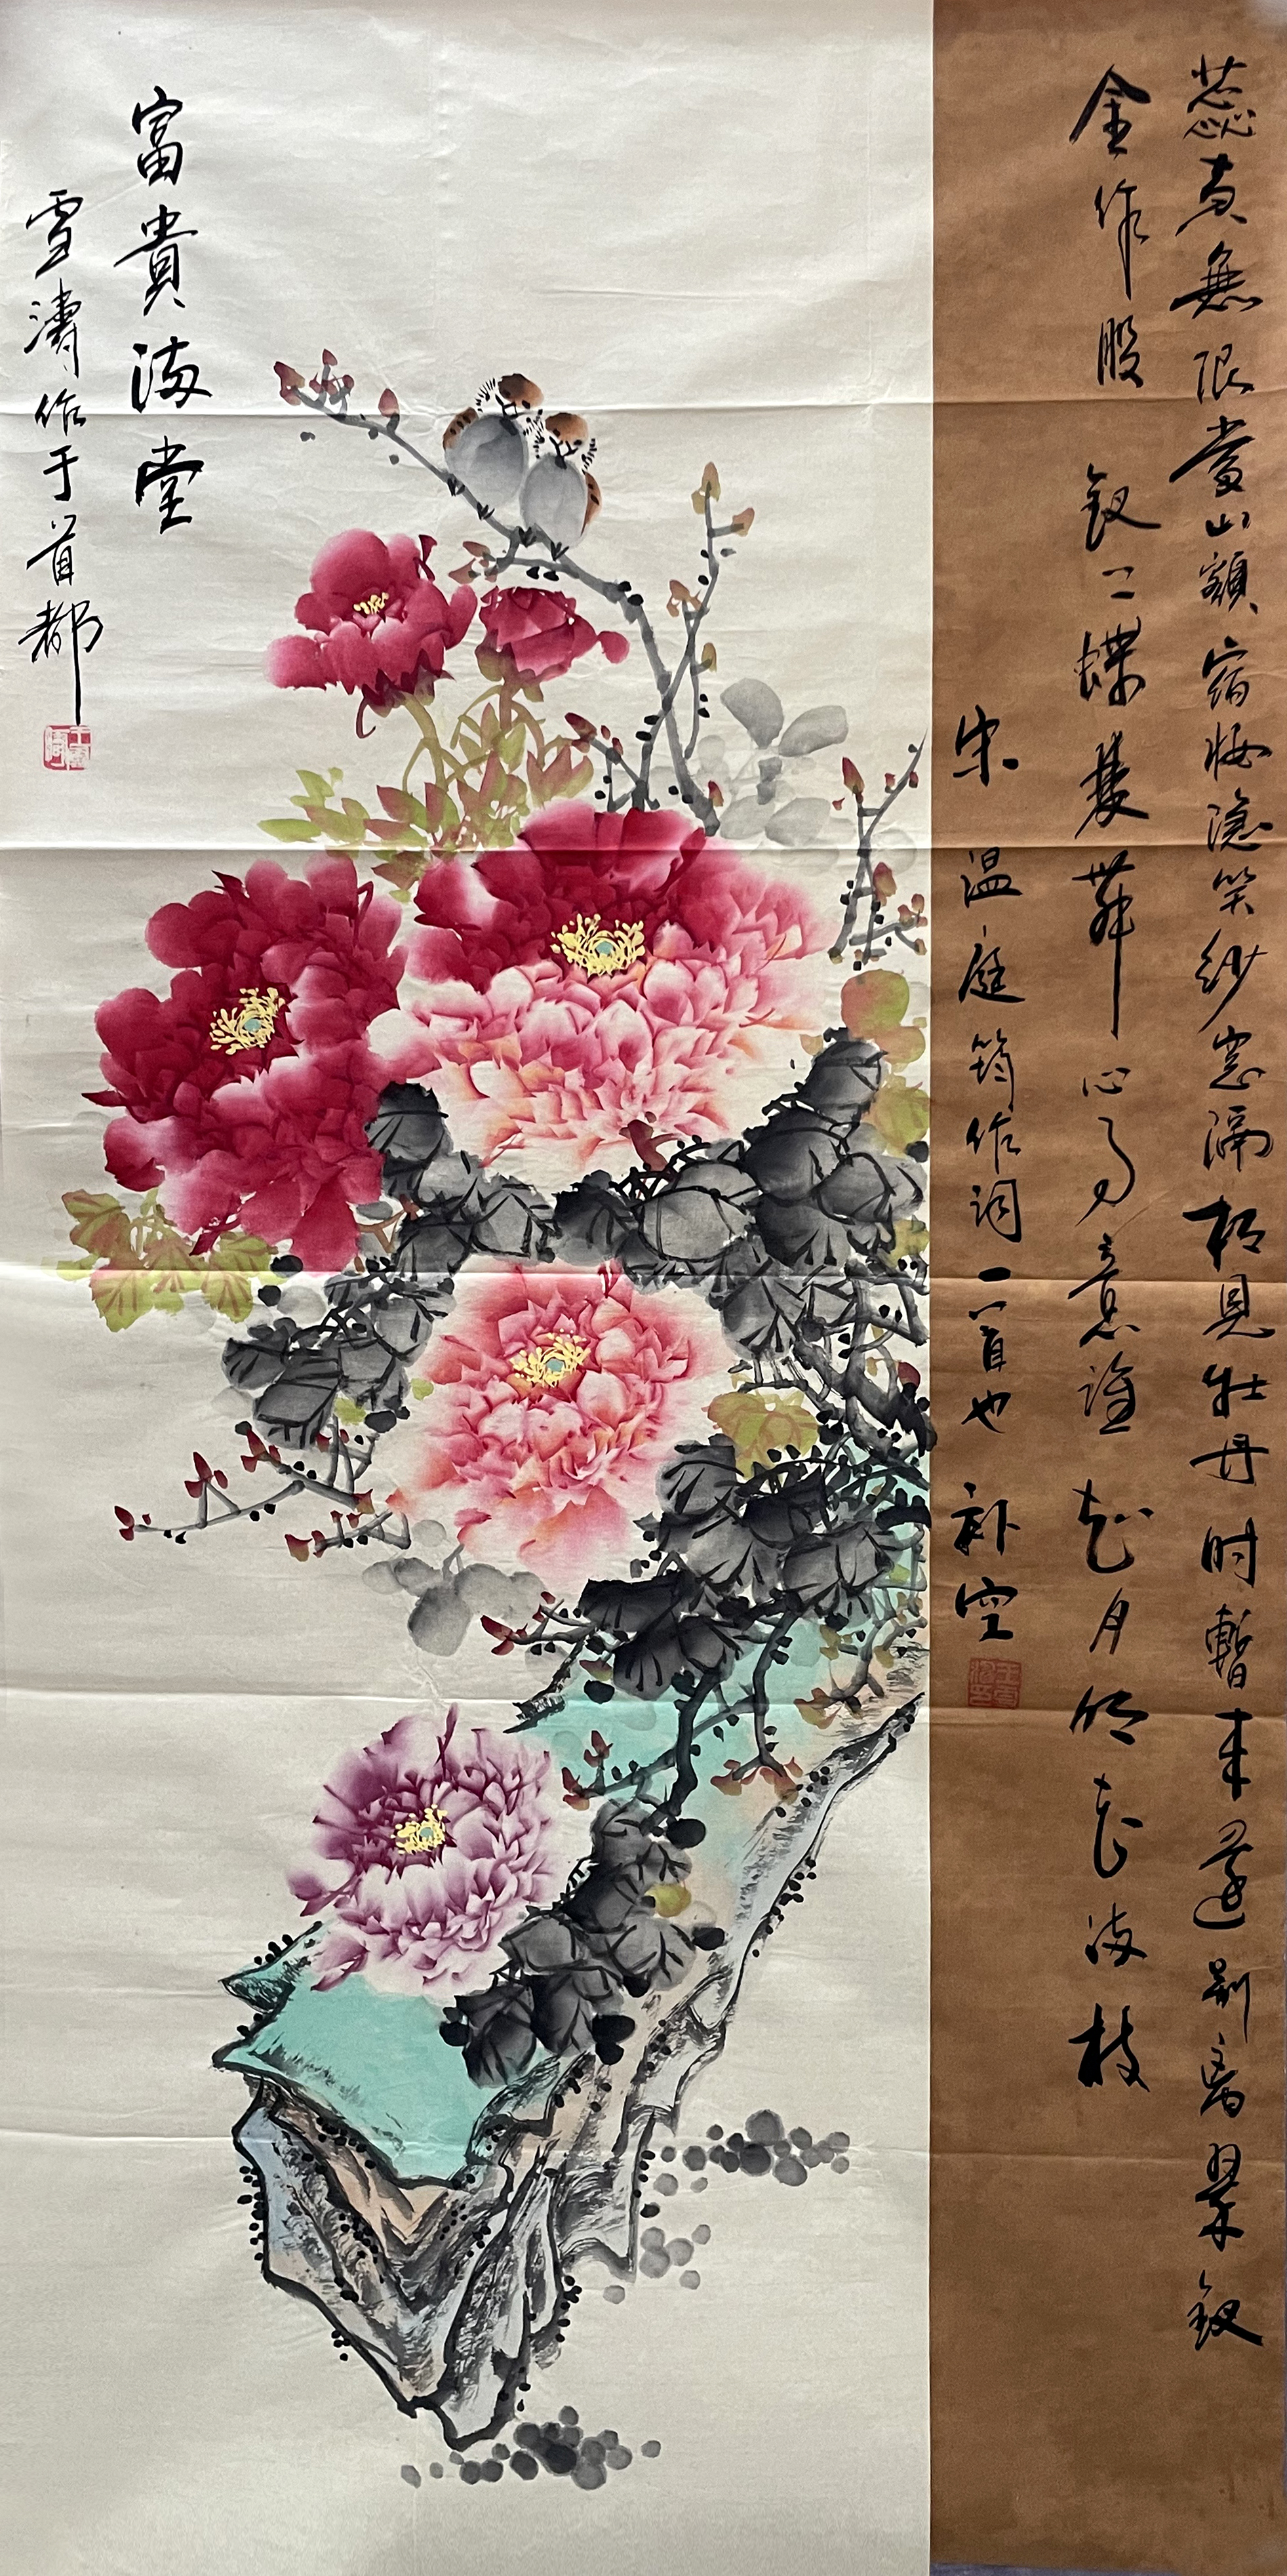 蕊黄無限當山額宿妝隱笑紗窓隔相見牡丹时暫来还别离翠釵
金作股釵上蝶雙舞心事竟谁知月明花满枝
宋温庭筠作词一首也补空
富貴满堂
雪濤作于首都